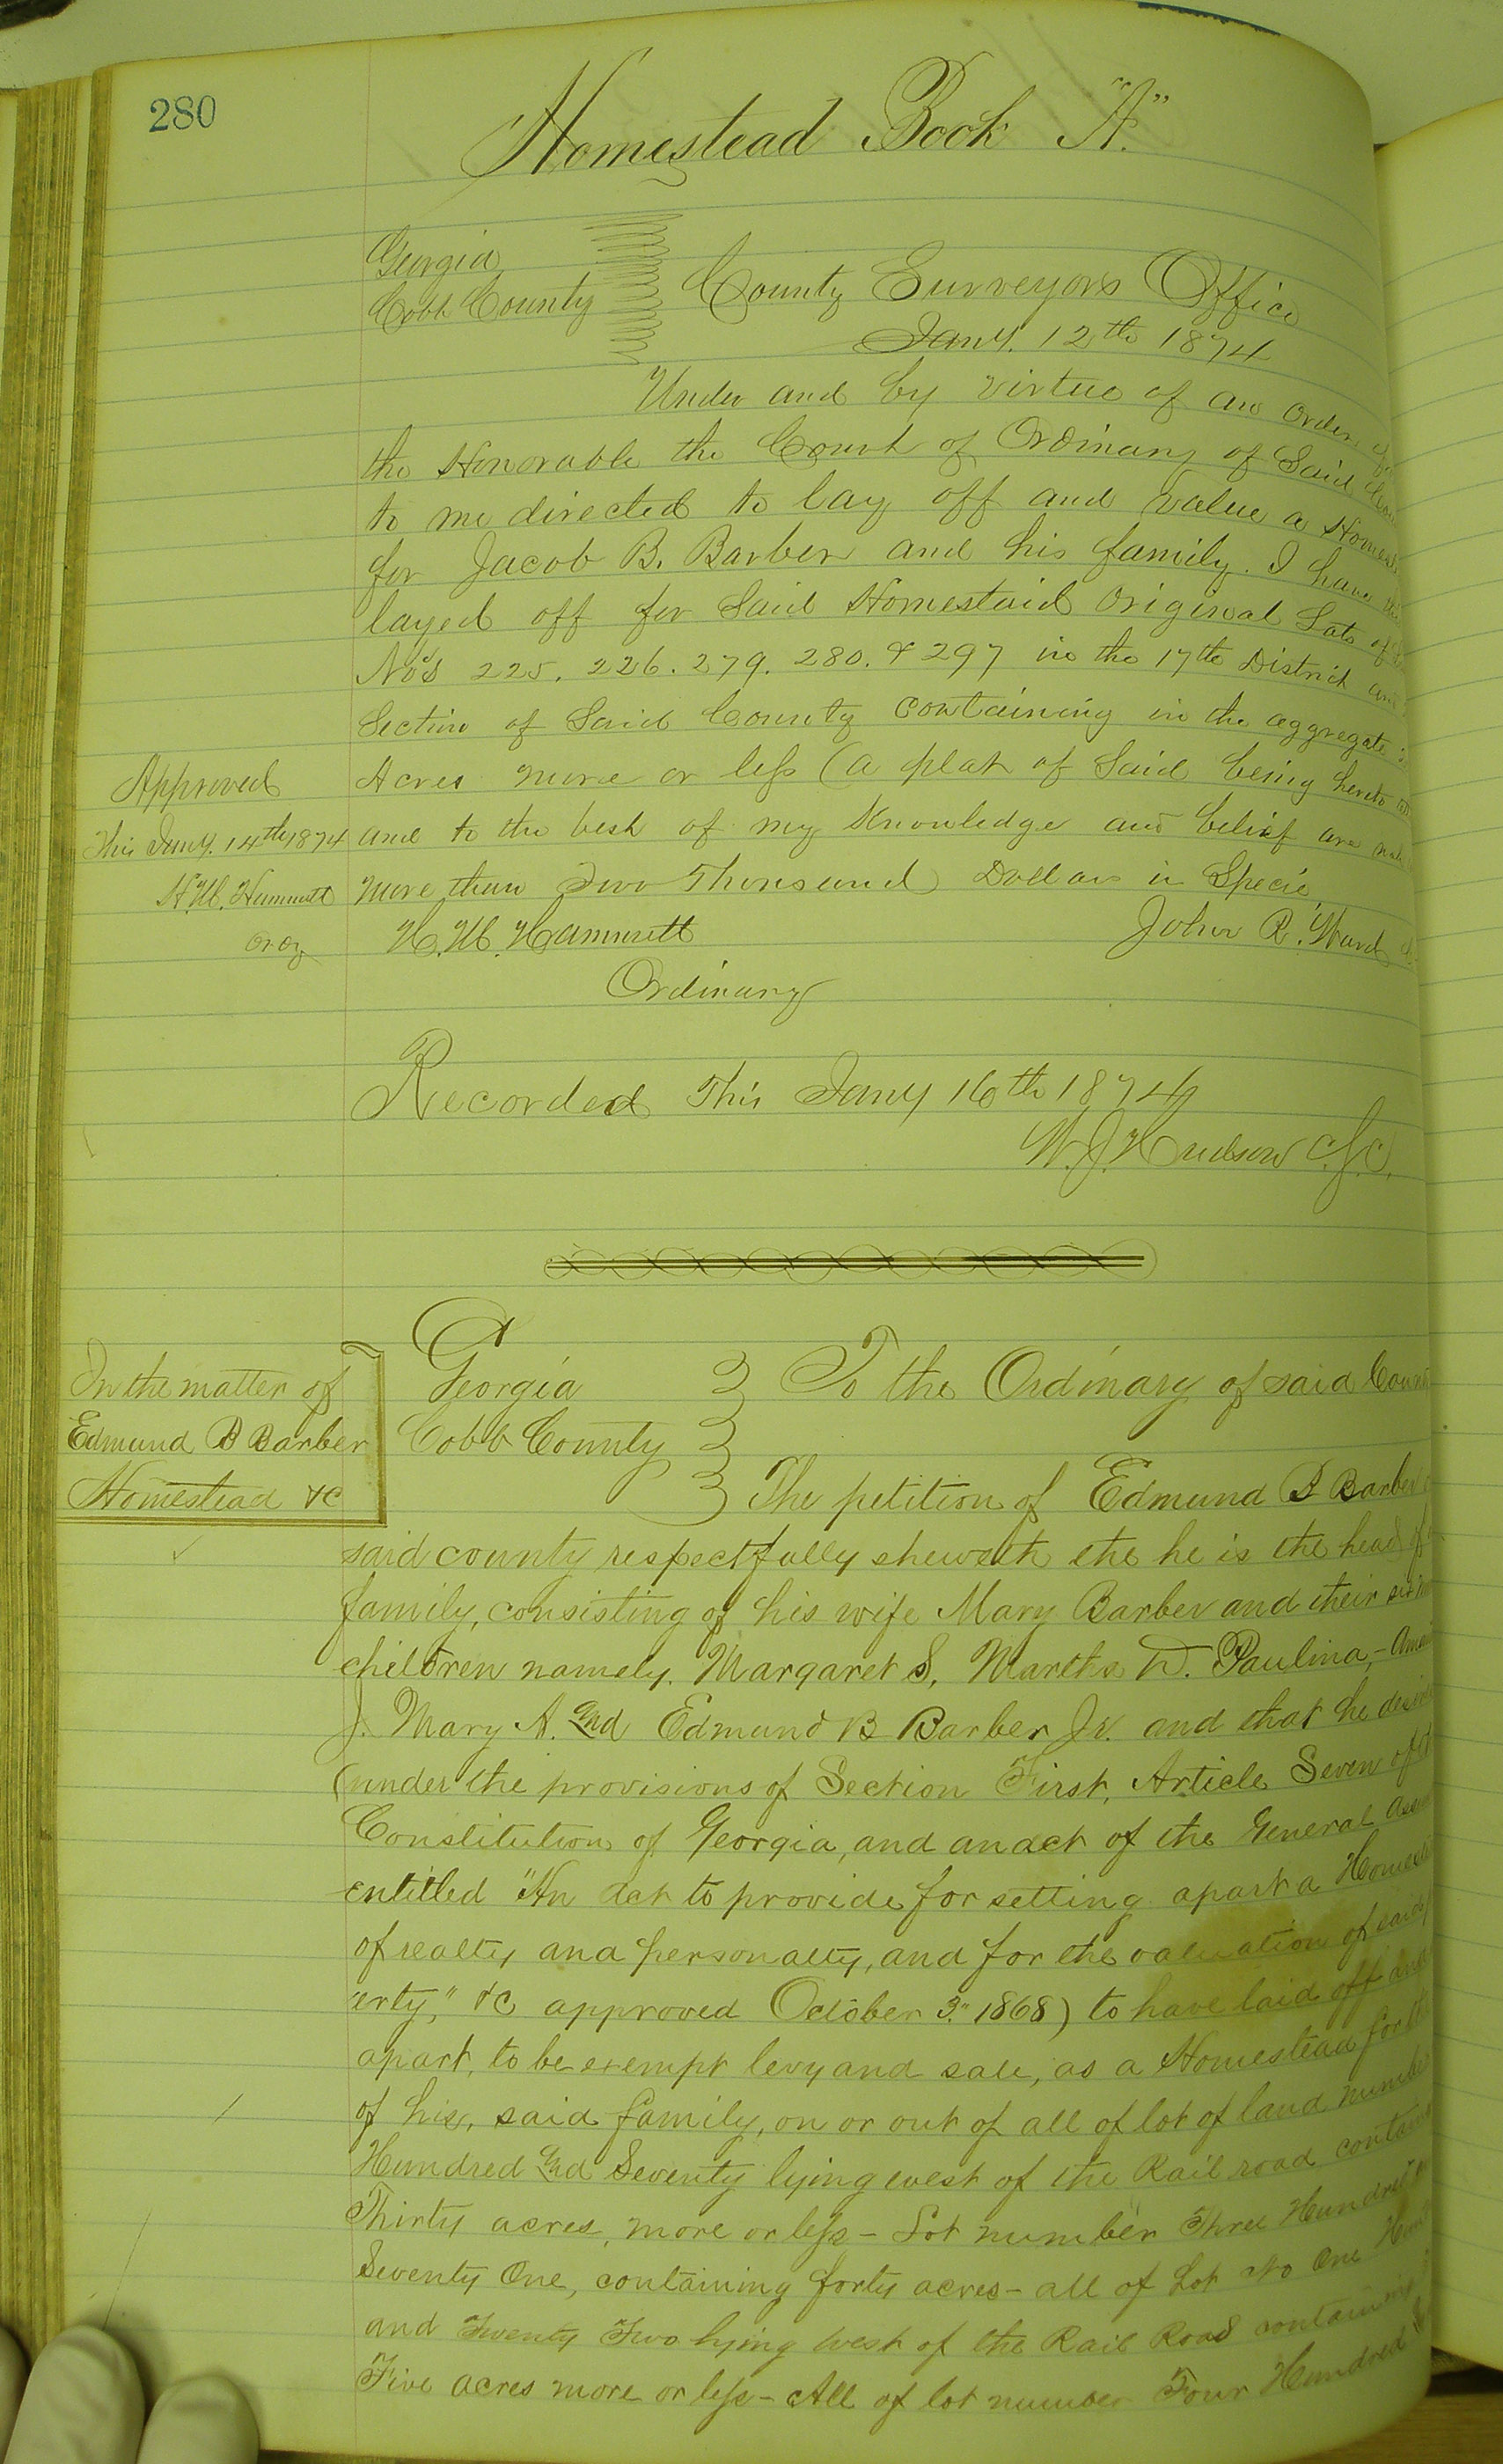 280
Homestead Book "A."
Georgia
Cobb County
County Surveyors Office
Jany. 12th 1874
Under and by virtue of an order of
the Honorable the Court of Ordinary of Said
to me directed to lay off and value a
for Jacob B. Barber and his family. I have
layed off for Said Homestaid Original Lots of
No's 225. 226. 279. 280. & 297 in the 17th District and
Section of Said County containing in the aggregate
Acres more or less (a plat of Said being hereto
and to the best of my Knowledge and belief are
more than Two Thousand Dollars in Specie
John R. Ward
H. M. Hammett
Ordinary
Approved
This Jany. 14th 1874
H. M. Hammett
Ordy
Recorded This Jany 16th 1874
W. J. Hudson C.S.C.
In the matter of
Edmund B Barber
Homestead &c
Georgia
Cobb County
To the Ordinary of said
The petition of Edmund B Barber
said county respectfully sheweth the he is the head of
family, consisting of his wife Mary Barber and their six
children namely. Margaret S, Martha W. Paulina,-
J. Mary A. And Edmund B Barber Jr. and that he
(under the provisions of Section First, Article Seven of
Constitution of Georgia, and an act of the General
entitled "An act to provide for setting apart a
of realty and personalty, and for the valuation of said
erty," &c approved October 3." 1868) to have laid off and
apart, to be exempt levy and sale, as a Homestead for
of his, said family, on or out of all of lot of land
Hundred And Seventy lying west of the Rail road
Thirty acres, more or less - Lot number Three Hundred
Seventy One, containing forty acres - all of Lot No One
and Twenty Two lying west of the Rail Road
Five acres more or less - All of lot number Four Hundred